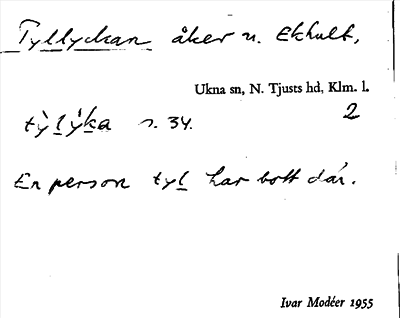 Tyllyckan åker u. Ekhult,
Ukna sn, N. Tjusts hd, Klm. l.
2
tỳlýka s. 34.
En person tyl har bott där.
Ivar Modéer 1955